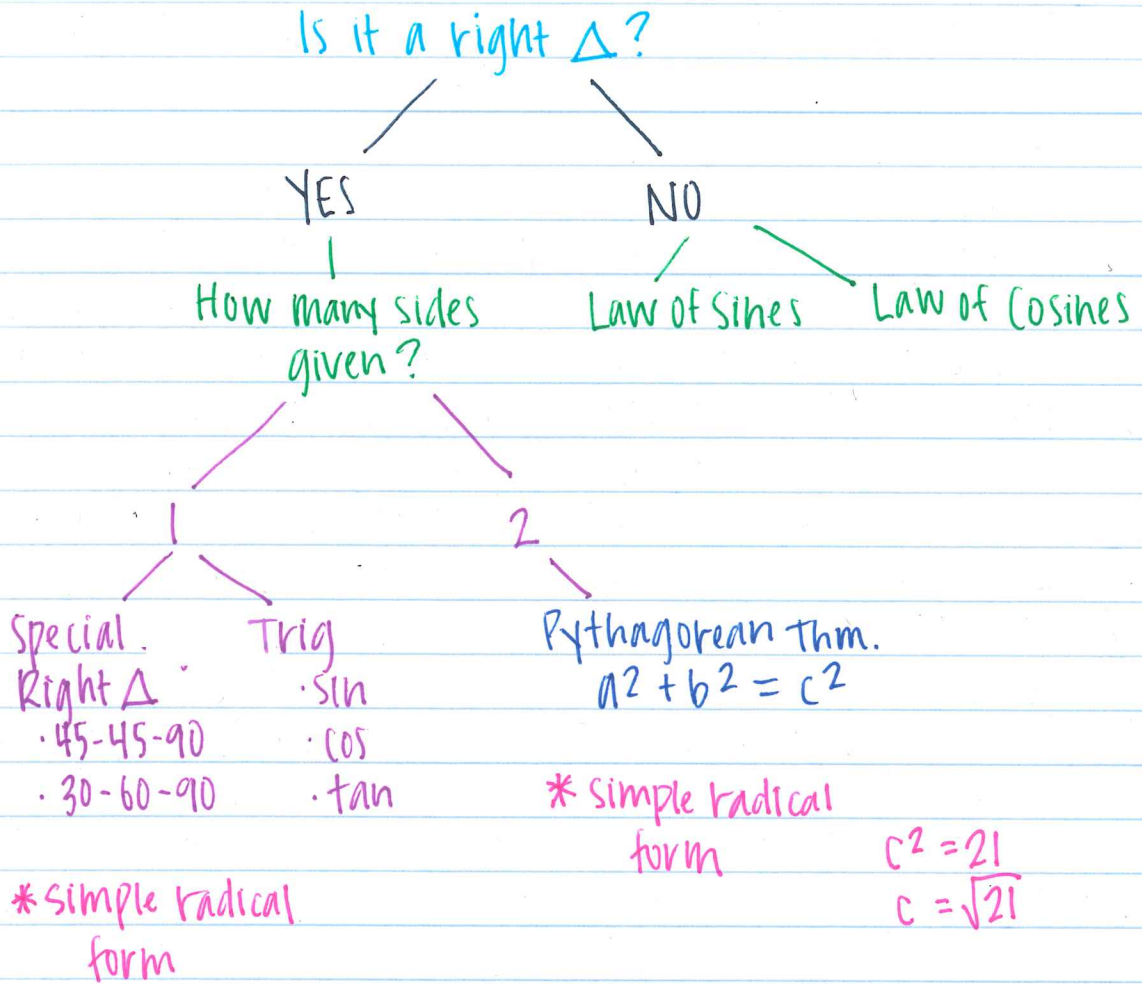 Is it a right Δ?
YES
NO
How many sides
given?
Law of Sines
Law of Cosines
1
2
Special
Right Δ
· 45-45-90
· 30-60-90
Trig
· sin
· cos
· tan
Pythagorean Thm.
a² + b² = c²
* simple radical
form
* simple radical
form
c² = 21
c = √21